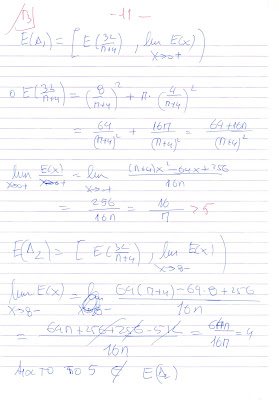 -11-
E(Δ₁) = [ E(32/(n+4)) , lim_{x→0+} E(x) )
E(32/(n+4)) = (8/(n+4))² + n·(4/(n+4))²
= 64/(n+4)² + 16n/(n+4)² = (64+16n)/(n+4)²
lim_{x→0+} E(x) = lim_{x→0+} ((n+4)x² - 64x + 256)/16n
= 256/16n = 16/n > 5
E(Δ₂) = [ E(32/(n+4)) , lim_{x→8-} E(x) )
lim_{x→8-} E(x) = lim_{x→8-} (64(n+4) - 64·8 + 256)/16n
= (64n + 256 + 256 - 512)/16n = 64n/16n = 4
το 5 ∉ E(Δ₂)